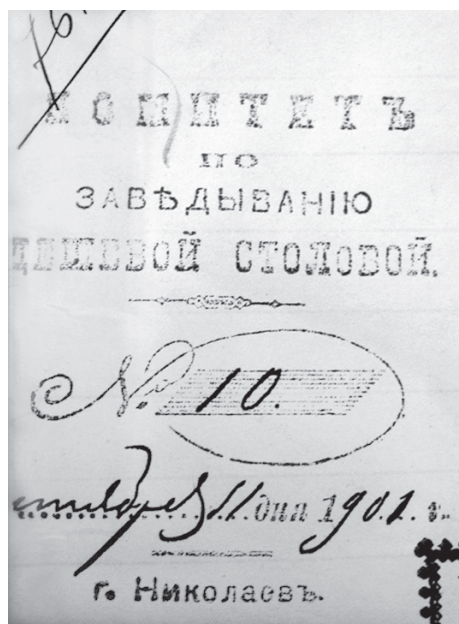 КОМИТЕТЪ
ПО
ЗАВѢДЫВАНІЮ
ДЕШЕВОЙ СТОЛОВОЙ.
№ 10.
11 дня 1901 г.
г. Николаевъ.